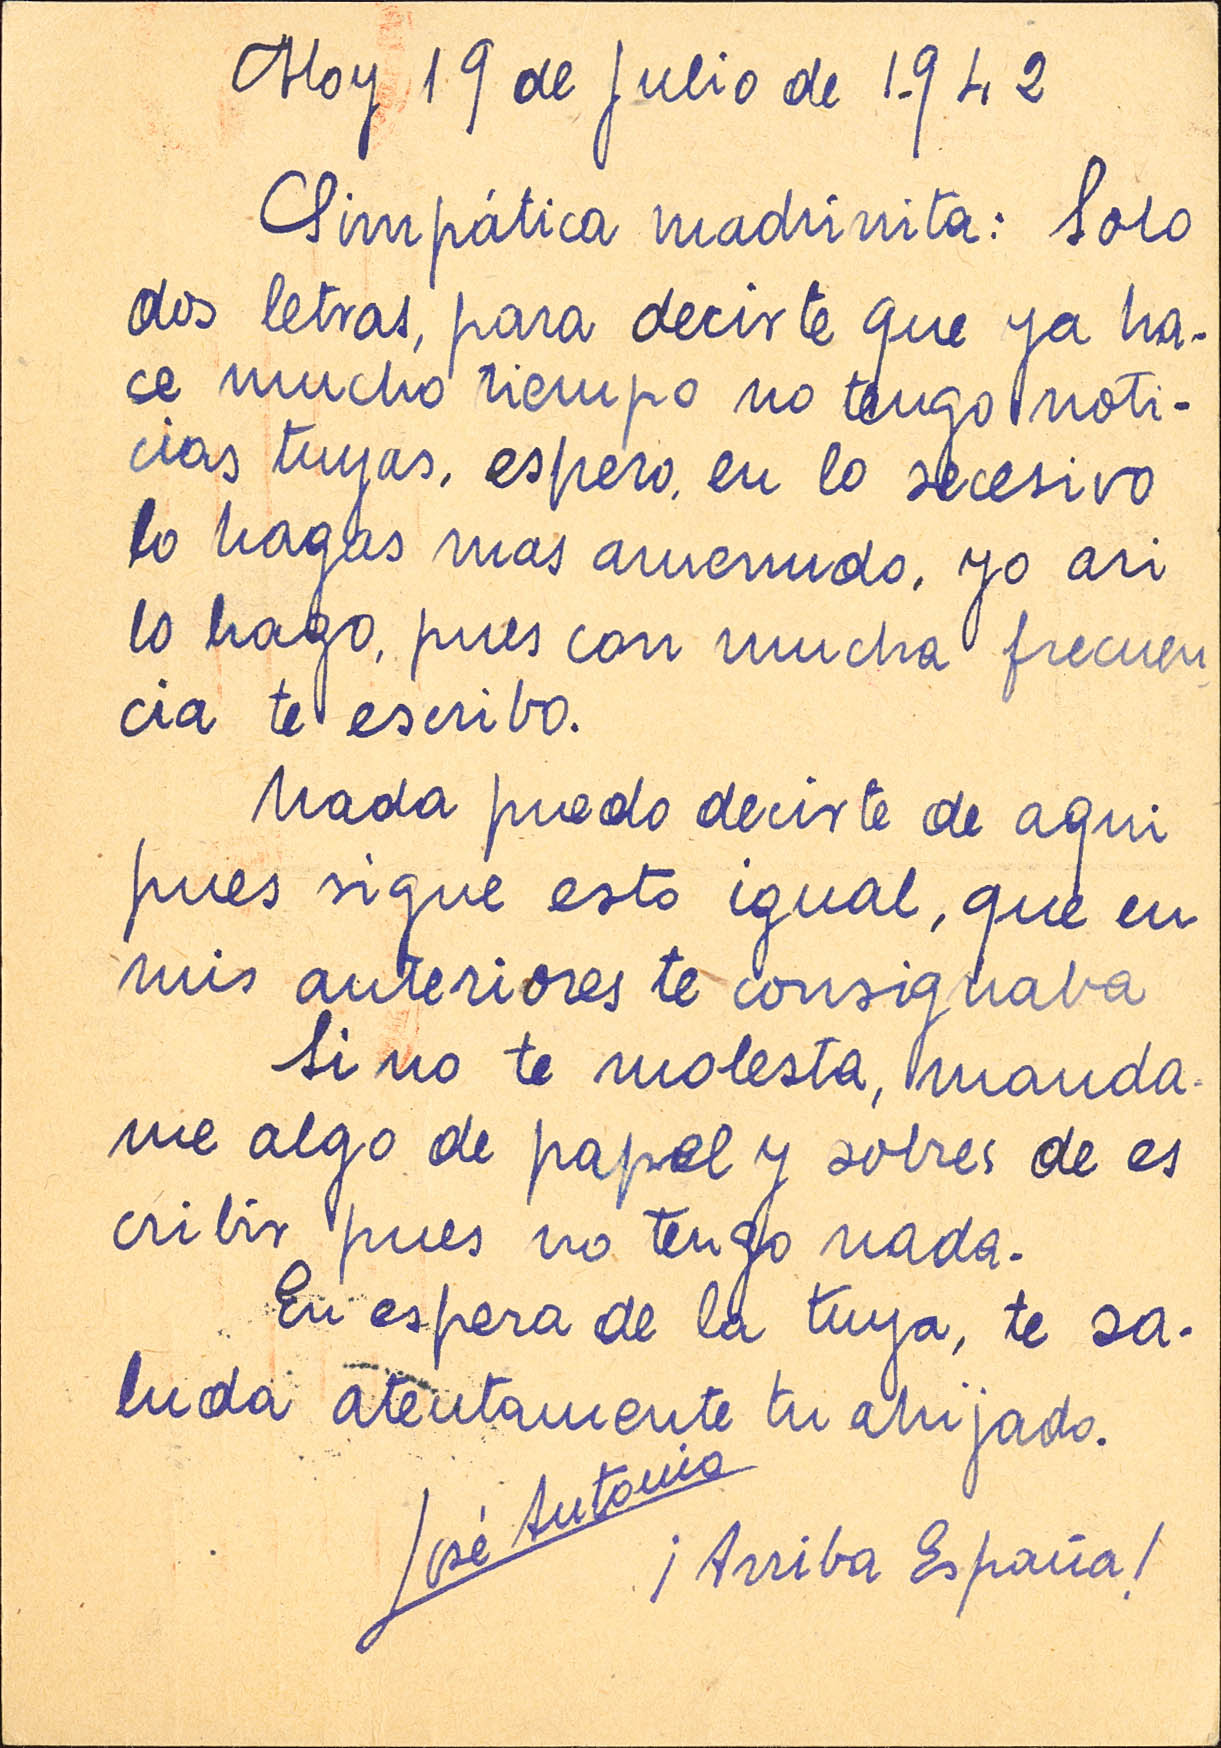 Hoy 19 de Julio de 1.942
Simpática madrinita: Solo
dos letras, para decirte que ya ha-
ce mucho tiempo no tengo noti-
cias tuyas, espero, en lo secesivo
lo hagas mas amenudo, yo asi
lo hago, pues con mucha frecuen
cia te escribo.
Nada puedo decirte de aqui
pues sigue esto igual, que en
mis anteriores te consignaba
Si no te molesta, manda-
me algo de papel y sobres de es
cribir pues no tengo nada.
En espera de la tuya, te sa-
luda atentamente tu ahijado.
José Antonio
¡Arriba España!